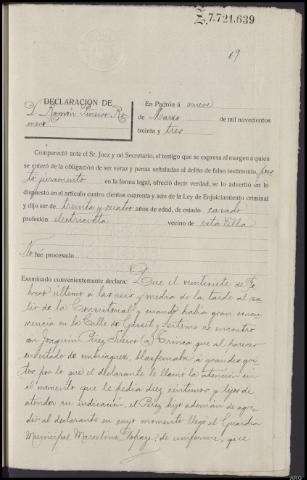 Z.7.721.639
19
DECLARACIÓN DE
D. Ramón Piñeiro Ro
mero
En Padrón á nueve
de Marzo de mil novecientos
treinta y tres
Compareció ante el Sr. Juez y mi Secretario, el testigo que se expresa al margen a quien
se enteró de la obligación de ser veraz y penas señaladas al delito de falso testimonio, pres
tó juramento en la forma legal, ofreció decir verdad, se lo advertió en lo
dispuesto en el artículo cuatro cientos cuarenta y seis de la Ley de Enjuiciamiento criminal
y dijo ser de treinta y cuatro años de edad, de estado casado
profesión electricista vecino de esta Villa
No fué procesado
Examinado convenientemente declara: Que el veintisiete de Fe
brero último a las seis y media de la tarde al sa
lir de la Consistorial y cuando había gran concu
rrencia en la Calle de se encontró
con Joaquín Pérez (a) al parecer
en estado de embriaguez, blasfemaba a grandes gri
tos por lo que el declarante le llamó la atención en
el momento que le pedía diez céntimos y lejos de
atender su indicación, el Pérez hizo ademán de agre
dir al declarante en cuyo momento llegó el Guardia
Municipal Marcelino de uniforme, que